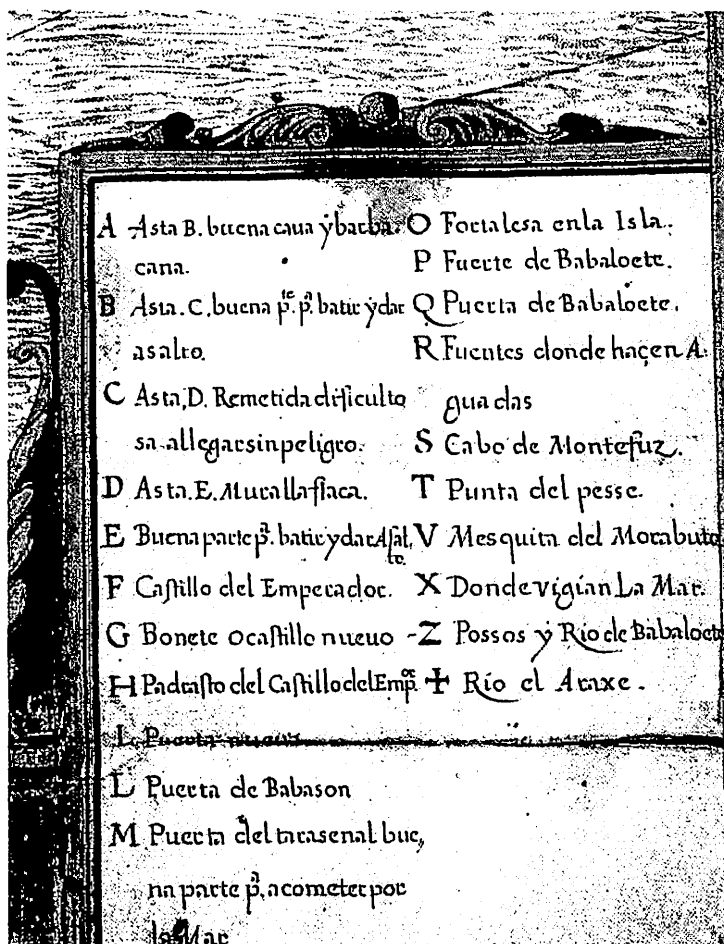 A Asta B. buena caua ẏ barba.
cana.
B Asta. C, buena p.te p.a batir ẏ dar
asalto.
C Asta, D. Remetida dificulto
sa allegar sin peligro.
D Asta. E. Muralla flaca.
E Buena parte p.a batir y dar Asal,
to.
F Castillo del Emperador.
G Bonete o castillo nueuo
H Padrasto del Castillo del Emp.or
I. Puerta nueua
L Puerta de Babason
M Puerta del tarasenal bue,
na parte p.a acometer por
la Mar
O Fortalesa en la Isla.
P Fuerte de Babaloete.
Q Puerta de Babaloete.
R Fuentes donde haçen A.
guadas
S Cabo de Montefuz.
T Punta del pesse.
V Mesquita del Morabuto
X Donde vigían La Mar.
Z Possos ẏ Río de Babaloete
+ Río el Araxe.